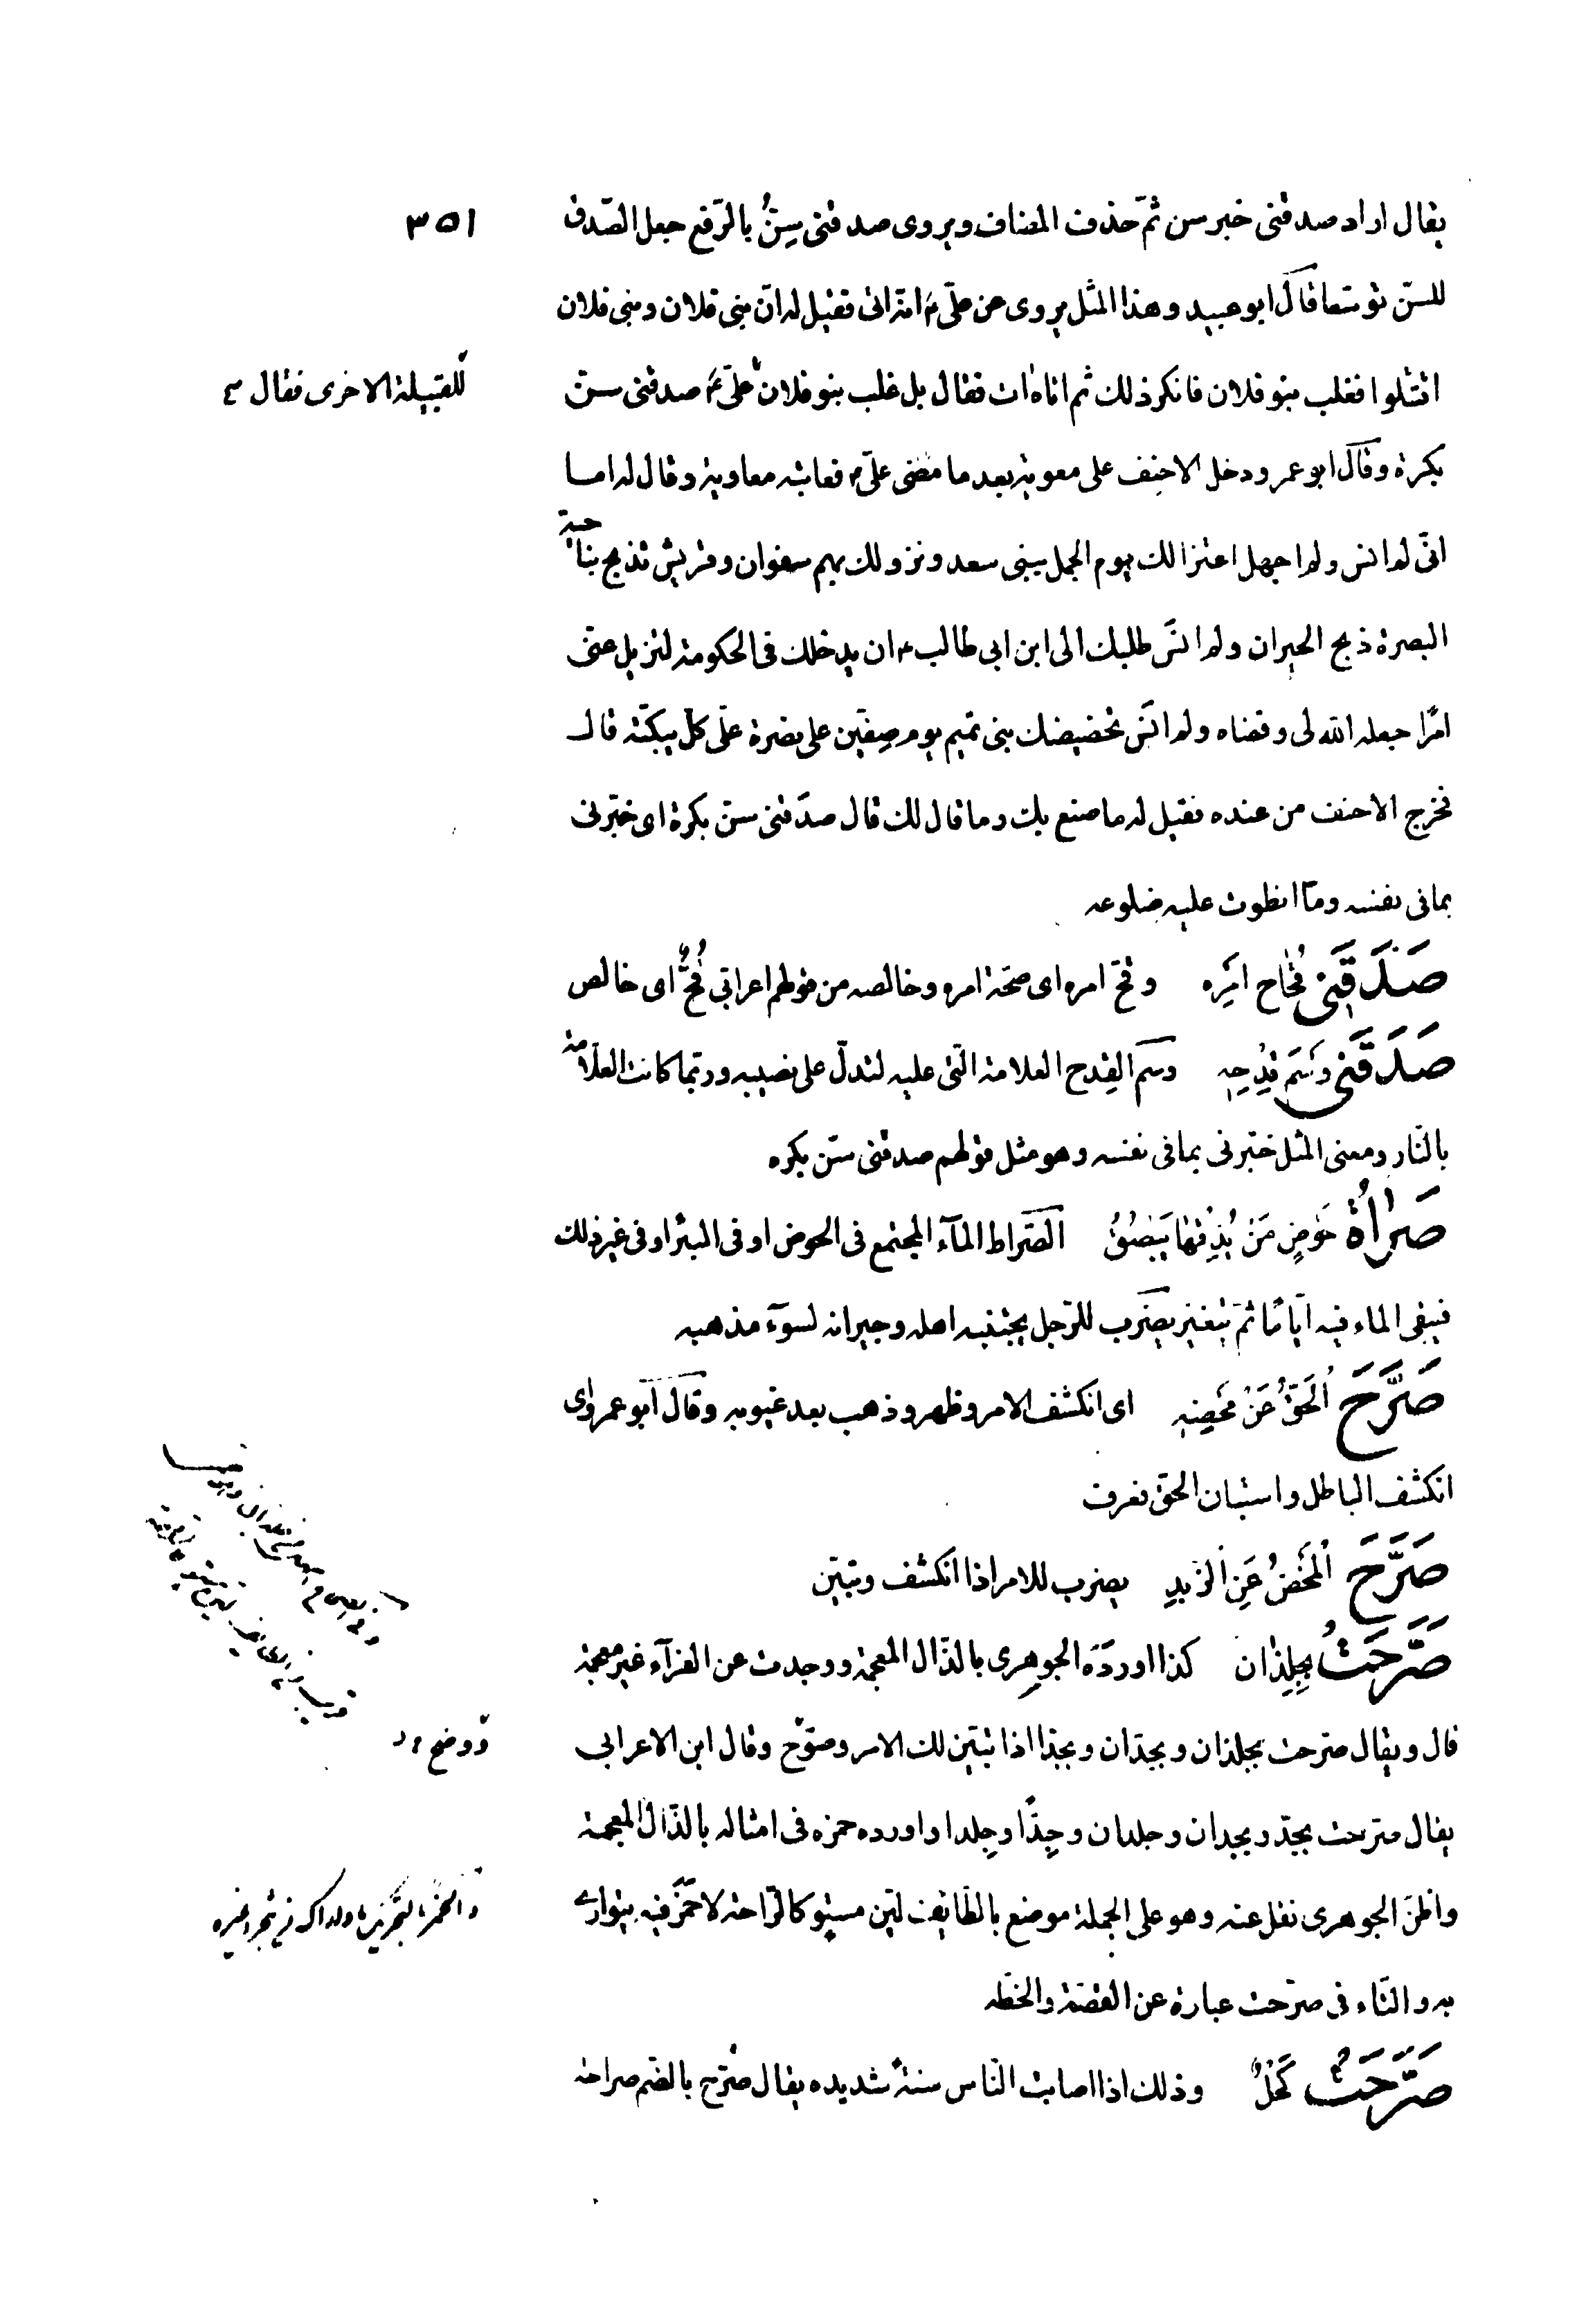 ٣٥١
يقال اراد صدقنى خبر سن ثمّ حذف المضاف ويروى صدقنى سِنُّ بالرّفع جعل الصّدق
للسنّ توسّعا قال ابو عبيد وهذا المثل يروى عن علىّ ع انّه اتى فقيل له انّ بنى فلان وبنى فلان
اقتتلوا فغلب بنو فلان فانكر ذلك ثم اتاه ات فقال بل غلب بنو فلان علىّ ع صدقنى سنّ
للقبيلة الاخرى فقال
بكره وقال ابو عمرو دخل الاحنف على معوية بعد ما مضى علىّ فعاتبه معاوية وقال له اما
انّى لم انس ولم اجهل اعتزالك يوم الجمل ببنى سعد ونزولك بهم سفوان وقريش تذبح بناحية
البصرة ذبح الحيران ولم انسَ طلبك الى ابن ابى طالب ع ان يدخلك فى الحكومة لتزيل عنّى
امرًا جعله الله لى وقضاه ولم انسَ تحضيضك بنى تميم يوم صفّين على نصرة علّى كلّ يبكّته قال
فخرج الاحنف من عنده فقيل له ما صنع بك وما قال لك قال صدَقنى سنّ بكره اى خبّرنى
بما فى نفسه وما انطوت عليه ضلوعه
صَدَقَنِى قُحَاحَ امْرِه وقحّ امره اى صحّة امره وخالصه من قولهم اعرابّى قُحٌّ اى خالص
صَدَقَنِى وَسْمَ قِدْحِهِ وسم القِدح العلامة الّتى عليه لتدلّ على نصيبه وربّما كانت العلامة
بالنّار ومعنى المثل خبّرنى بما فى نفسه وهو مثل قولهم صدقنى سنّ بكره
صَرَاةُ حَوْضٍ مَنْ يَذُقْهَا يَبْصُقُ الصّراط المآء المجتمع فى الحوض او فى البئر او فى غير ذلك
فيبقى الماء فيه ايّامًا ثمّ يتغيّر يضرب للرّجل يجتنبه اهله وجيرانه لسوٓء مذهبه
صَرَّحَ الْحَقُّ عَنْ مَحْضِهِ اى انكشف الامر وظهر وذهب بعد غيوبه وقال ابو عمرو اى
انكشف الباطل واستبان الحقّ فعرف
صَرَّحَ الْمَحْضُ عَنِ الزَّبَدِ يضرب للامر اذا انكشف وتبيّن
صَرَّحَتْ بِجِلِذَان كذا اورده الجوهرى بالذّال المعجمة ووجدت عن الفرّآء غير معجمة
قال ويقال صرحت بجلذان وبجدّان وبجدّا اذا تبيّن لك الامر وصرّح وقال ابن الاعرابى
ووضح
يقال صرحت بجدّ وبجدان وجلدان وجِدًّا وجِلدا واورده حمزه فى امثاله بالذّال المعجمة
واظنّ الجوهرى نقل عنه وهو على الجملة موضع بالطّائف ليّن مستو كالرّاحة لا خمَرَ فيه يتوارى
به والتّاء فى صرّحت عبارة عن القصّة والخطّة
صَرَّحَتْ كَحْلُ وذلك اذا اصابت النّاس سنةٌ شديده يقال صَرُح بالضم صراحة